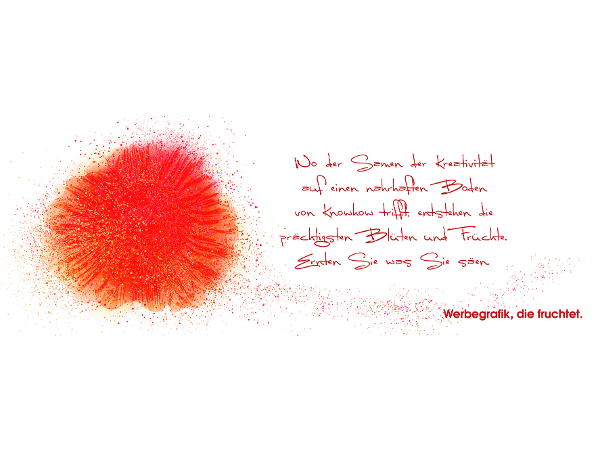 Wo der Samen der Kreativität
auf einen nahrhaften Boden
von Knowhow trifft, entstehen die
prächtigsten Blüten und Früchte.
Ernten Sie was Sie säen.
Werbegrafik, die fruchtet.